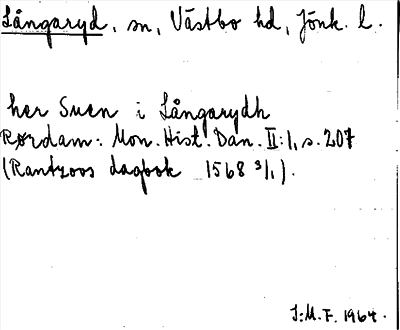 Långaryd, sn, Västbo hd, Jönk. l.
her Suen i Långarydh
Rørdam: Mon. Hist. Dan. II:1, s. 207
(Rantzoos dagbok 1568 3/1).
J:M.F. 1964.